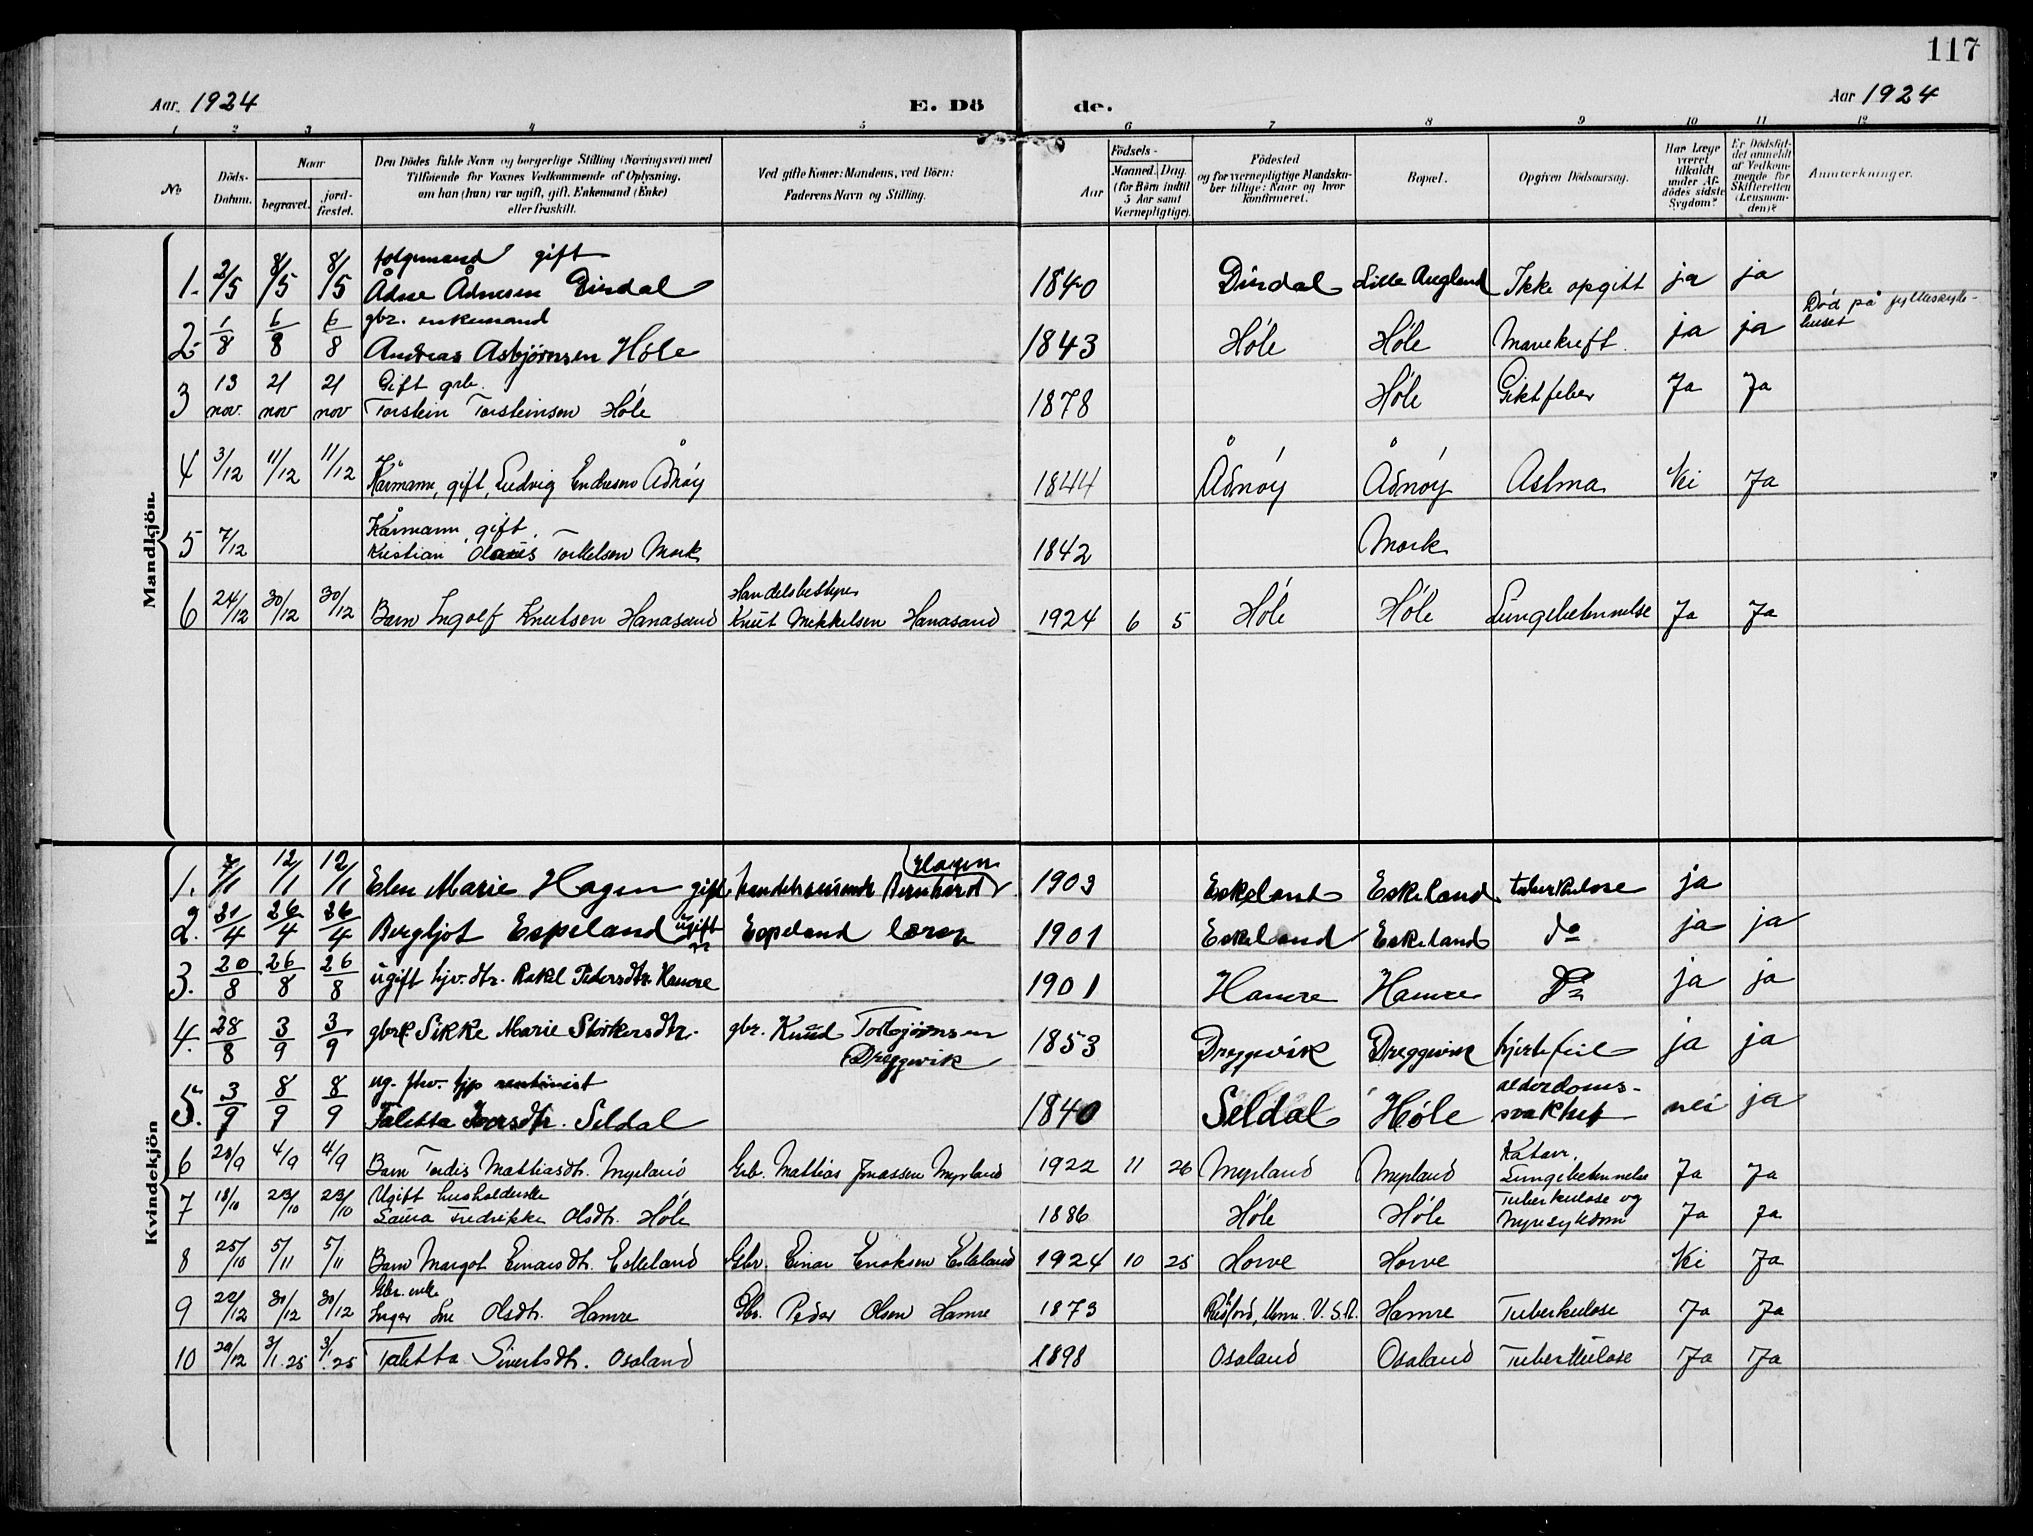 117
Aar 1924 E. Dö de. Aar 1924
1 2 3 4 5 6 7 8 9 10 11 12
No
Döds-Datum.
Naar
begravet. jord-fæstet.
Den Dödes fulde Navn og borgerlige Stilling (Næringsvei) med
Tilföiende for Voxnes Vedkommende af Oplysning,
om han (hun) var ugift, gift, Enkemand (Enke)
eller fraskilt.
Ved gifte Koner: Mandens, ved Börn:
Faderens Navn og Stilling.
Aar
Födsels-
Maaned. Dag.
(for Börn indtil
5 Aar samt
Værnepligtige).
Födested
og for værnepligtige Mandska-
ber tillige: Naar og hvor
konfirmeret.
Bopæl.
Opgiven Dödsaarsag.
Har Læge
været
tilkaldt
under Af-
dödes sidste
Sygdom?
Er Dödsfal-
det anmeldt
af Vedkom-
mende for
Skifteretten
(Lensman-
den)?
Anmærkninger.
Mandkjön.
folgemand gift
1. 2/5 8/5 8/5 Ådne Ådnesen Dirdal 1840 Dirdal Lille Augland Ikke opgitt ja ja
gbr. enkemand
2. 1/8 6/8 6/8 Andreas Asbjørnsen Høle 1843 Høle Høle Mavekreft. ja ja Død på sykehuset
Gift grb.
3 13 nov. 21 nov 21 nov Torstein Torsteinsen Høle 1878 Høle Giktfeber Ja Ja
4 3/12 11/12 11/12 Kårmann, gift, Ludvig Endresen Ådnøy 1844 Ådnøy Ådnøy Astma Nei Ja
Kårmann, gift.
5 7/12 Kristian Olaus Torkelsen Mork 1842 Mork
Handelsbestyrer
6 24/12 30/12 30/12 Barn Ingolf Knutsen Hanasand Knut Mikkelsen Hanasand 1924 6 5 Høle Høle Lungebetennelse Ja Ja
Kvindekjön
1. 7/1 12/1 12/1 Elen Marie Hagen gift handelsreisende Bernhard Hagen 1903 Eskeland Eskeland tuberkulose ja
2. 21/4 26/4 26/4 Bergljot Espeland ugift Espeland lærer 1901 Eskeland Eskeland do ja ja
3. 20/8 26/8 26/8 ugift hjv. dtr. Rakel Pedersdtr. Hamre 1901 Hamre Hamre Do ja ja
4. 28/8 3/9 3/9 gbrk. Sikke Marie Størkersdtr. gbr. Knud Torbjørnsen 1853 Dreggevik Dreggevik hjertefeil ja ja
Dreggevik
ug. fhv. hjp rentenist
5. 3/9 8/9 8/9 Taletta Iversdtr. Seldal 1840 Seldal Høle alderdoms-svakhet nei ja
6 28/9 4/9 4/9 Barn Tordis Mattiasdtr. Myrland Grb. Mattias Jonassen Myrland 1922 11 26 Myrland Myrland Katarr. Lungebetennelse Ja Ja
Ugift husholderske
7 18/10 23/10 23/10 Laura Fredrikke Olsdtr. Høle 1886 Høle Høle Tuberkulose og Nyresykdom Ja Ja
8 25/10 5/11 5/11 Barn Margot Einarsdtr. Eskeland Gbr. Einar Enoksen Eskeland 1924 10 25 Horve Horve Nei Ja
Gbr. enke
9 22/12 30/12 30/12 Inger Ine Olsdtr. Hamre Gbr. Peder Olsen Hamre 1873 Minn. U.S.A. Hamre Tuberkulose Ja Ja
10 29/12 3/1.25 3/1.25 Taletta Sivertsdtr. Osaland 1898 Osaland Osaland Tuberkulose Ja Ja